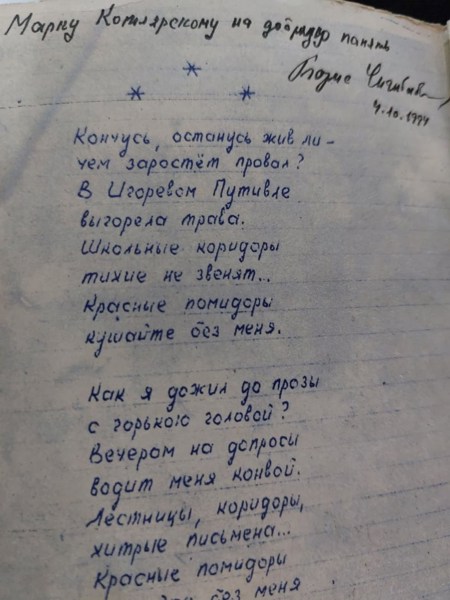 Марку Котлярскому на добрую память
Борис Чичибабин
4.10.1994
*
* *
Кончусь, останусь жив ли –
чем заростёт провал?
В Игоревом Путивле
выгорела трава.
Школьные коридоры
тихие не звенят..
Красные помидоры
кушайте без меня.
Как я дожил до прозы
с горькою головой?
Вечером на допросы
водит меня конвой.
Лестницы, коридоры,
хитрые письмена...
Красные помидоры
без меня